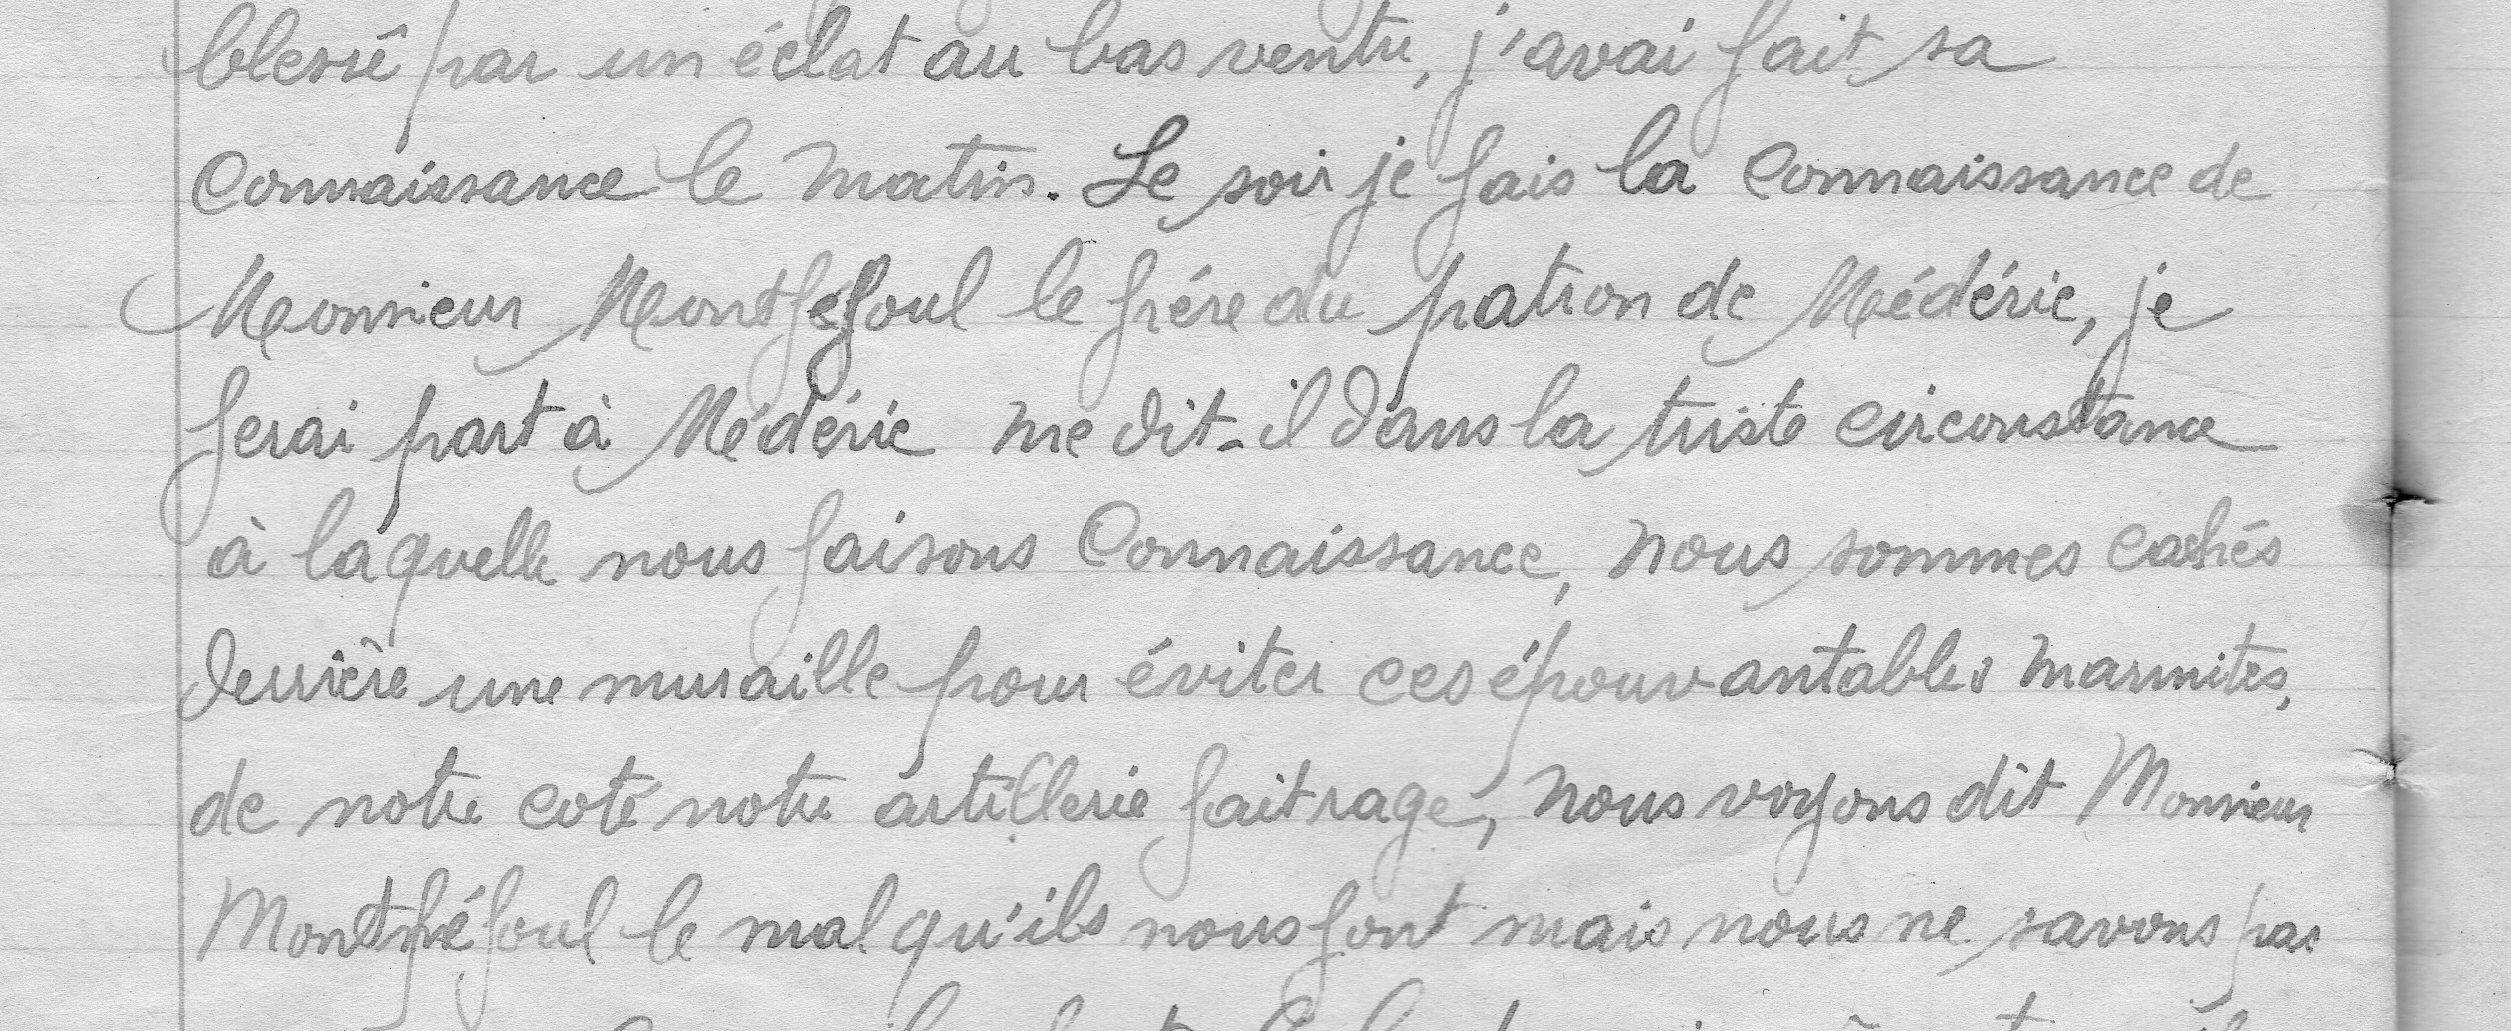 blessé par un éclat au bas ventre, j'avai fait sa
Connaissance le matin. Le soir je fais la Connaissance de
Monsieur le frère du patron de Médéric, je
ferai part à Médéric me dit-il dans la triste circonstance
à laquelle nous faisons Connaissance, nous sommes cachés
derrière une muraille pour éviter ces épouvantables marmites,
de notre coté notre artillerie fait rage, nous voyons dit Monsieur
le mal qu'ils nous font mais nous ne savons pas